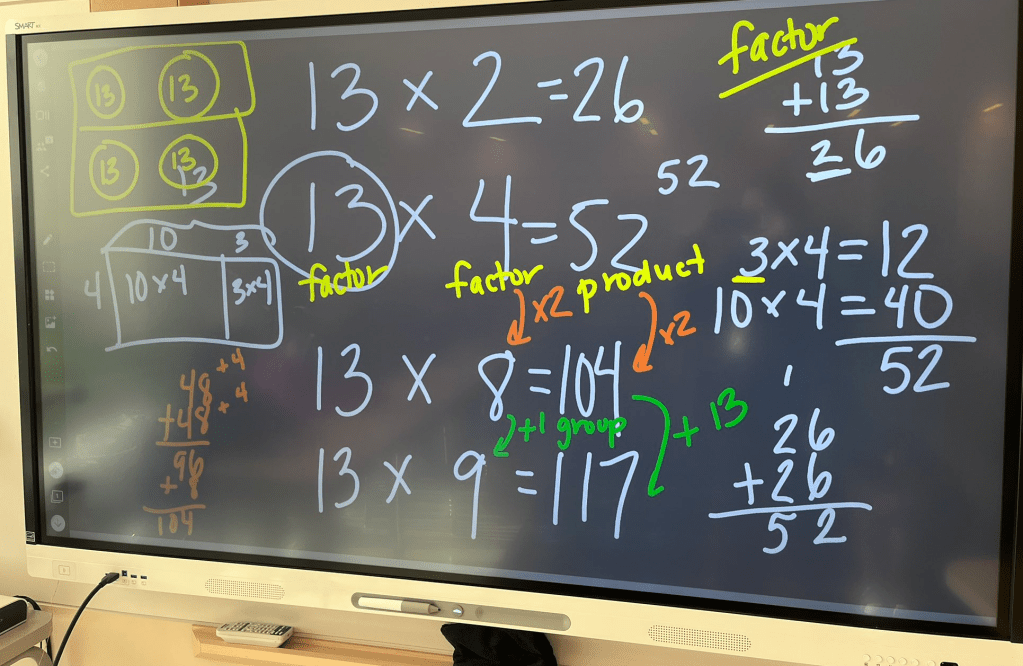 SMART
13 13
13 13
13
13 × 2 = 26
factor
13
+13
26
13 × 4 = 52
52
factor factor product
×2 ×2
10 3
4 10×4 3×4
3×4=12
10×4=40
52
13 × 8 = 104
+1 group +13
13 × 9 = 117
48 +4
+48 +4
96
+8
104
1
26
+26
52